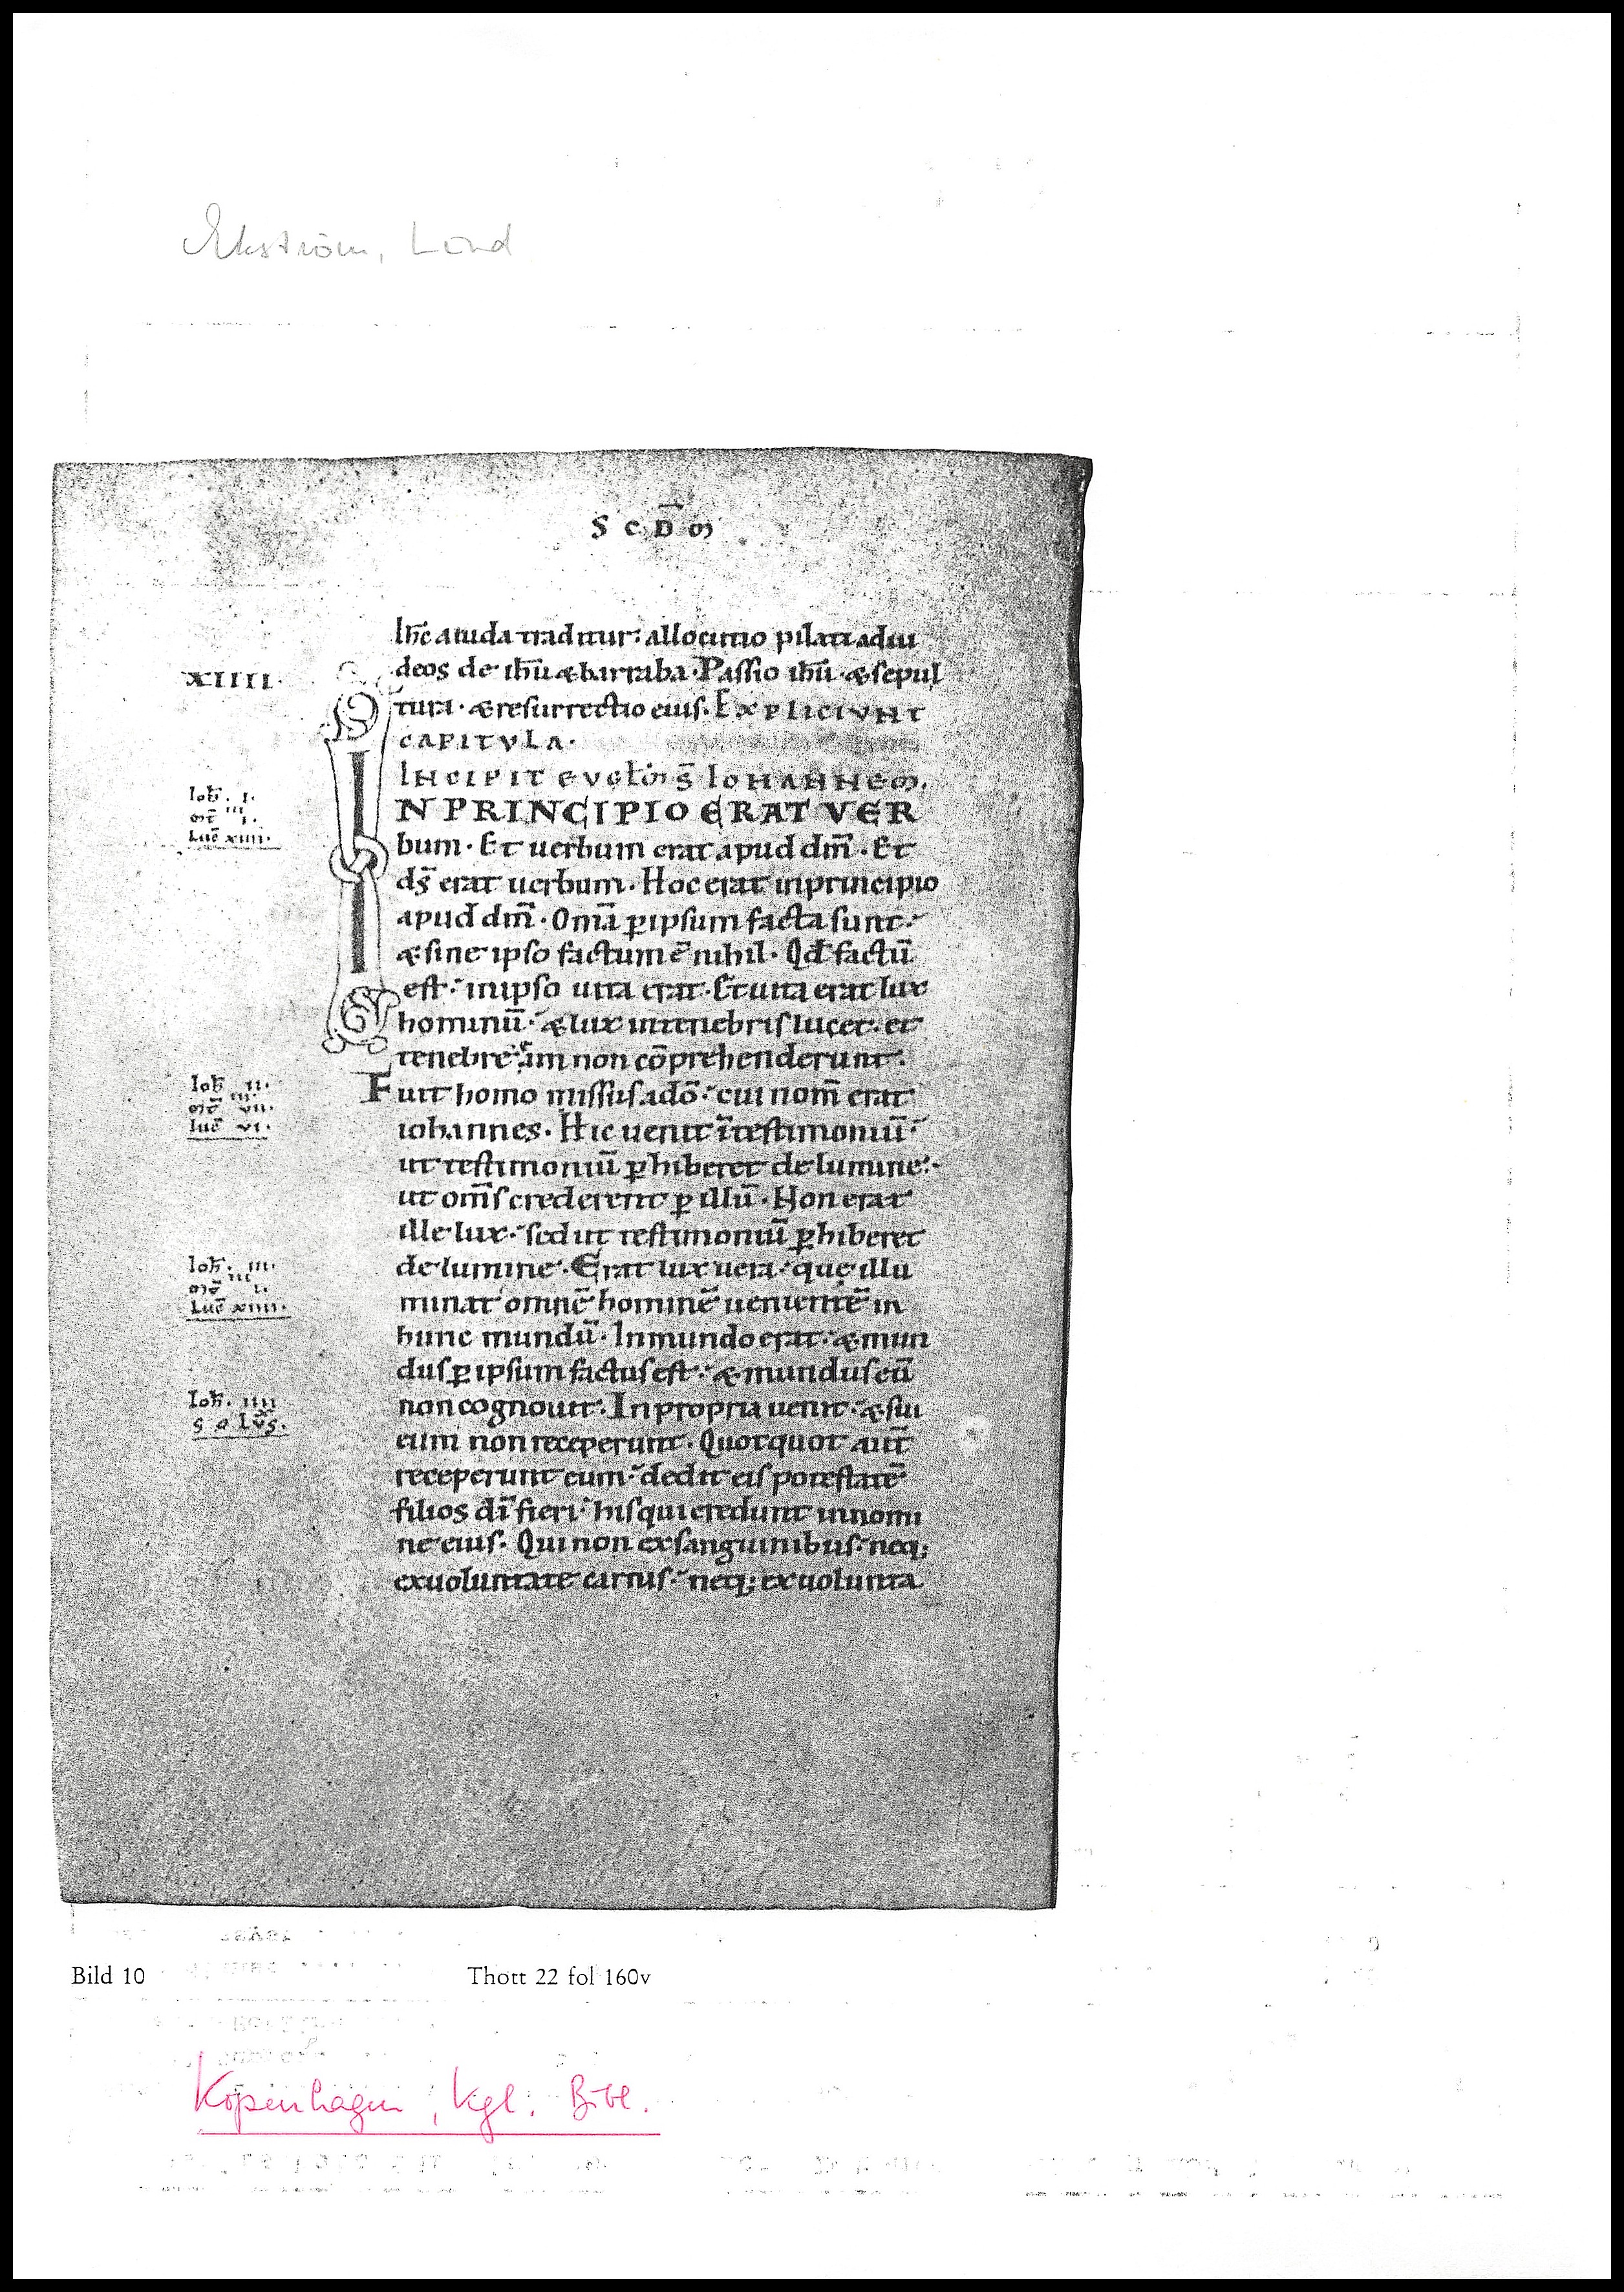 Ekström, Lund
S C D̄ M
XIIII.
Ih̄c a iuda traditur: allocutio pilati ad iu
deos de ih̄u & barraba. Passio ih̄u. & sepul
tura. & resurrectio eius. EXPLICIUNT
CAPITULA.
INCIPIT EVGLM̄ S̄ IOHANNEM.
Ioh̄. I.
III
M̄T I.
Luc̄ XIIII.
IN PRINCIPIO ERAT VER
bum. Et uerbum erat apud dm̄. Et
ds̄ erat uerbum. Hoc erat in principio
apud dm̄. Om̄a ꝑ ipsum facta sunt:
& sine ipso factum ē nihil. Qd̄ factū
est: in ipso uita erat. Et uita erat lux
hominū: & lux in tenebris lucet. et
tenebre eam non cōprehenderunt.
Ioh̄ II.
III
M̄T VII.
Luc̄ VI.
Fuit homo missus a dō: cui nom̄ erat
iohannes. Hic uenit ī testimoniū:
ut testimoniū ꝑhiberet de lumine:
ut om̄s crederent ꝑ illū. Non erat
ille lux: sed ut testimoniū ꝑhiberet
Ioh̄. III.
III
M̄T I.
Luc̄ XIIII.
de lumine. Erat lux uera: quę illu
minat omnē hominē uenientē in
hunc mundū. In mundo erat: & mun
dus ꝑ ipsum factus est: & mundus eū
Ioh̄. IIII
SOLVS.
non cognouit. In propria uenit: & sui
eum non receperunt. Quotquot aut̄
receperunt eum: dedit eis potestatē
filios dī fieri: his qui credunt in nomi
ne eius. Qui non ex sanguinibus: neq;
ex uoluntate carnis: neq; ex uolunta
Bild 10
Thott 22 fol 160v
Kopenhagen, Kgl. Bibl.